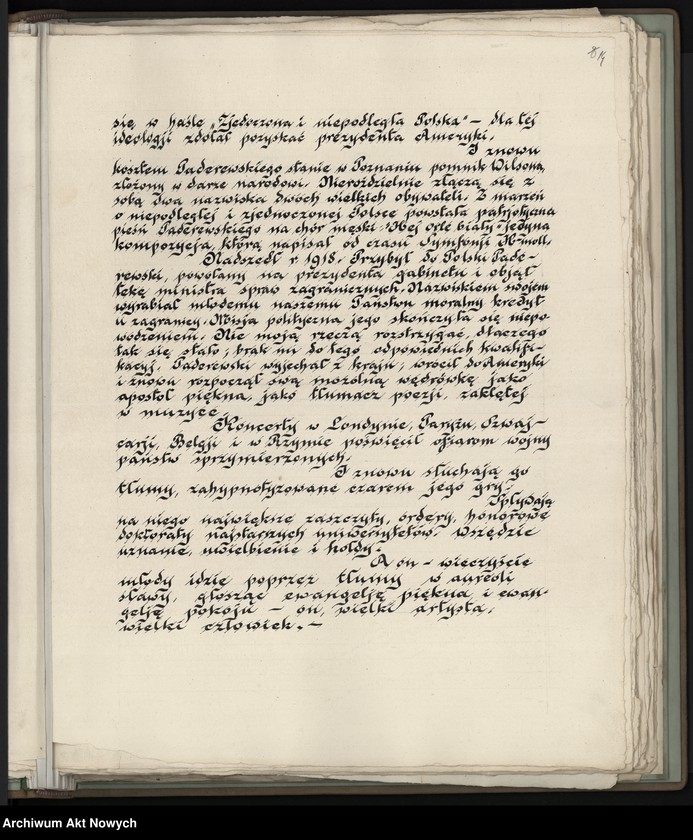 84
się w haśle „Zjednoczona i niepodległa Polska" — dla tej
ideologji zdołał pozyskać prezydenta Ameryki.
I znowu
kosztem Paderewskiego stanie w Poznaniu pomnik Wilsona,
złożony w darze narodowi. Nierozdzielnie złączą się z
sobą dwa nazwiska dwóch wielkich obywateli. Z marzeń
o niepodległej i zjednoczonej Polsce powstała patrjotyczna
pieśń Paderewskiego na chór męski: "Hej orle biały" jedyna
kompozycja, którą napisał od czasu Symfonji H-moll.
Nadszedł r. 1918. Przybył do Polski Pade-
rewski, powołany na prezydenta gabinetu i objął
tekę ministra spraw zagranicznych. Nazwiskiem swojem
wyrabiał młodemu naszemu Państwu moralny kredyt
u zagranicy. Misja polityczna jego skończyła się niepo-
wodzeniem. Nie moją rzeczą rozstrzygać, dlaczego
tak się stało, brak mi do tego odpowiednich kwalifi-
kacyj. Paderewski wyjechał z kraju, wrócił do Ameryki
i znowu rozpoczął swą mozolną wędrówkę jako
apostoł piękna, jako tłumacz poezji, zaklętej
w muzyce.
Koncerty w Londynie, Paryżu, Szwaj-
carji, Belgji i w Rzymie poświęcił ofiarom wojny
państw sprzymierzonych.
I znowu słuchają go
tłumy, zahypnotyzowane czarem jego gry.
Spływają
na niego największe zaszczyty, ordery, honorowe
doktoraty najstarszych uniwersytetów. Wszędzie
uznanie, uwielbienie i hołdy.
A on — wieczyście
młody idzie poprzez tłumy w aureoli
sławy, głosząc ewangelję piękna i ewan-
gelję pokoju — on, wielki artysta,
wielki człowiek. —
Archiwum Akt Nowych